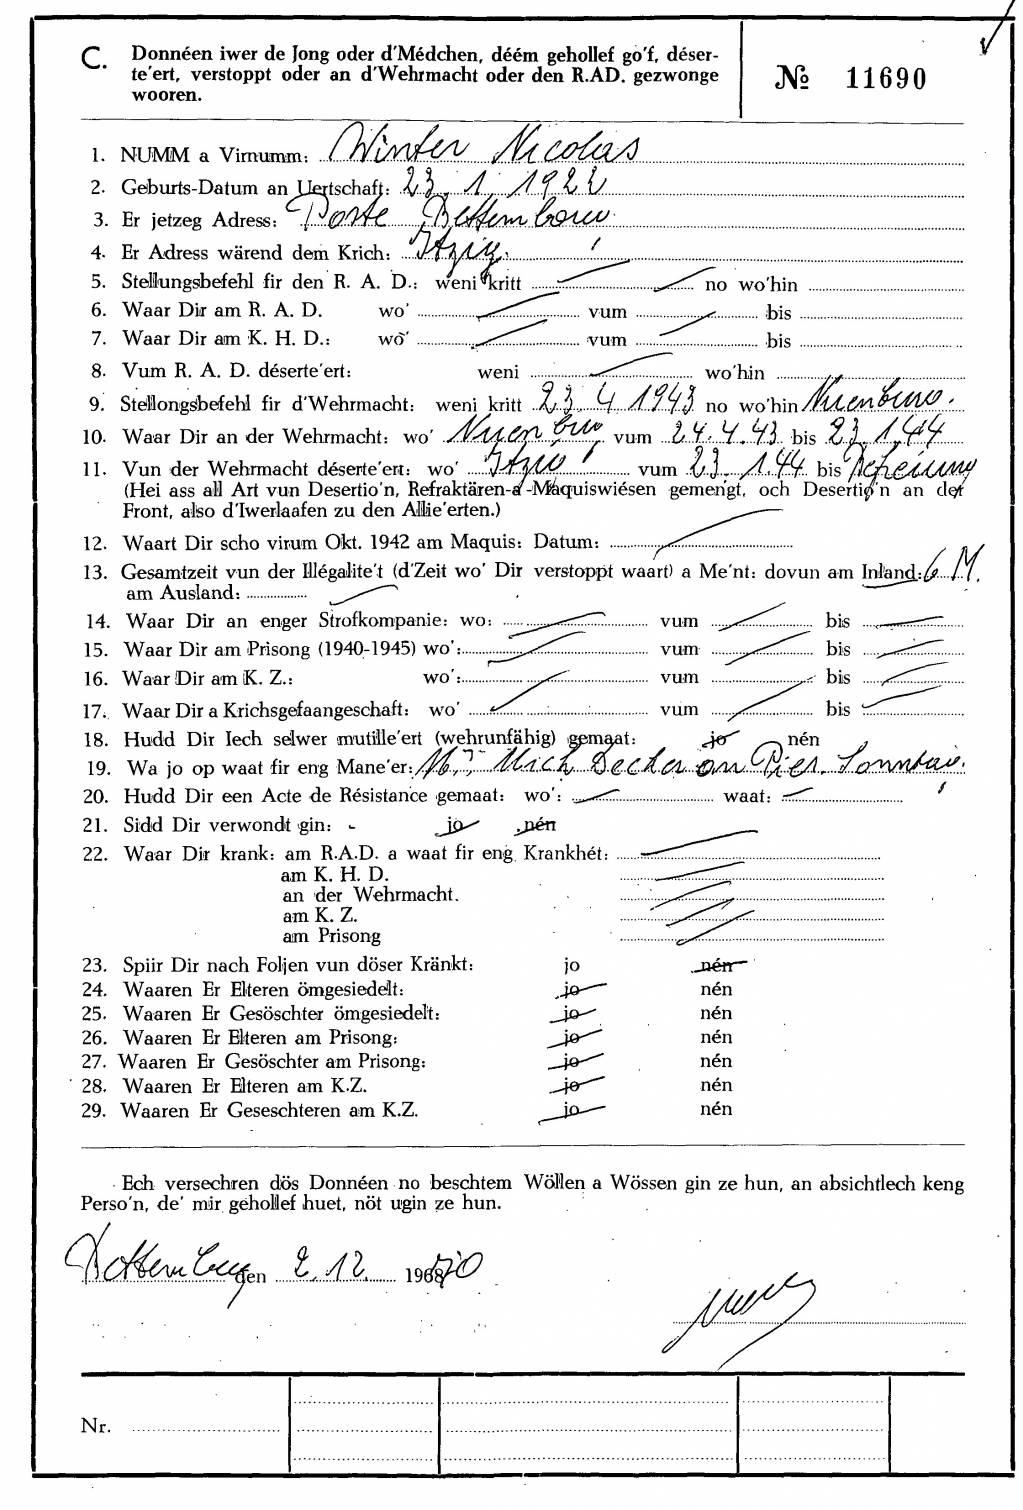 C. Donnéen iwer de Jong oder d'Médchen, déém gehollef go'f, déser-
te'ert, verstoppt oder an d'Wehrmacht oder den R.AD. gezwonge
wooren.
№ 11690
1. NUMM a Virnumm: Winter Nicolas
2. Geburts-Datum an Uertschaft: 23. 1. 1922
3. Er jetzeg Adress: Poste Bettembourg
4. Er Adress wärend dem Krich: Itzig
5. Stellungsbefehl fir den R. A. D.: weni kritt no wo'hin
6. Waar Dir am R. A. D. wo' vum bis
7. Waar Dir am K. H. D.: wo' vum bis
8. Vum R. A. D. déserte'ert: weni wo'hin
9. Stellongsbefehl fir d'Wehrmacht: weni kritt 23. 4 1943 no wo'hin Nuenburg.
10. Waar Dir an der Wehrmacht: wo' Nuenburg vum 24.4.43 bis 23.1.44
11. Vun der Wehrmacht déserte'ert: wo' Itzig vum 23. 1.44 bis Befreiung
(Hei ass all Art vun Desertio'n, Refraktären-a -Maquiswiésen gemengt, och Desertio'n an der
Front, also d'Iwerlaafen zu den Allie'erten.)
12. Waart Dir scho virum Okt. 1942 am Maquis: Datum:
13. Gesamtzeit vun der Illégalite't (d'Zeit wo' Dir verstoppt waart) a Me'nt: dovun am Inland: 6 M.
am Ausland:
14. Waar Dir an enger Strofkompanie: wo: vum bis
15. Waar Dir am Prisong (1940-1945) wo': vum bis
16. Waar Dir am K. Z.: wo': vum bis
17. Waar Dir a Krichsgefaangeschaft: wo' vum bis
18. Hudd Dir Iech selwer mutille'ert (wehrunfähig) gemaat: jo nén
19. Wa jo op waat fir eng Mane'er: Mich Decker an Pier. Sonntag.
20. Hudd Dir een Acte de Résistance gemaat: wo': waat:
21. Sidd Dir verwondt gin: - jo nén
22. Waar Dir krank: am R.A.D. a waat fir eng Krankhét:
am K. H. D.
an der Wehrmacht.
am K. Z.
am Prisong
23. Spiir Dir nach Foljen vun döser Kränkt: jo nén
24. Waaren Er Elteren ömgesiedelt: jo nén
25. Waaren Er Gesöschter ömgesiedelt: jo nén
26. Waaren Er Elteren am Prisong: jo nén
27. Waaren Er Gesöschter am Prisong: jo nén
28. Waaren Er Elteren am K.Z. jo nén
29. Waaren Er Geseschteren am K.Z. jo nén
Ech versechren dös Donnéen no beschtem Wöllen a Wössen gin ze hun, an absichtlech keng
Perso'n, de' mir gehollef huet, nöt ugin ze hun.
Bettemburg den 2.12. 19670
Nr.